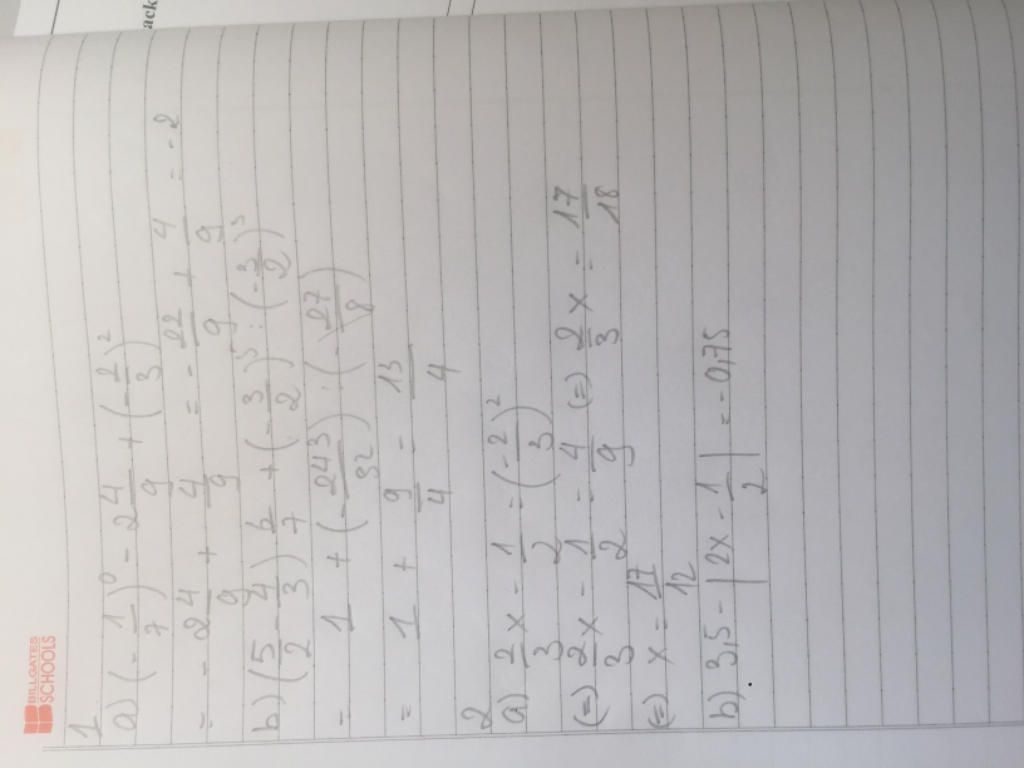 ack
BILLGATES
SCHOOLS
1
a) (-1/7)^0 - 2 4/9 + (2/3)^2
= -2 4/9 + 4/9 = -22/9 + 4/9 = -2
b) (5/2 - 4/3) 6/7 + (-3/2)^5 : (-3/2)^3
= 1 + (-243/32) : (-27/8)
= 1 + 9/4 = 13/4
2
a) 2/3 x - 1/2 = (-2/3)^2
(=) 2/3 x - 1/2 = 4/9 (=) 2/3 x = 17/18
(=) x = 17/12
b) 3,5 - | 2x - 1/2 | = -0,75